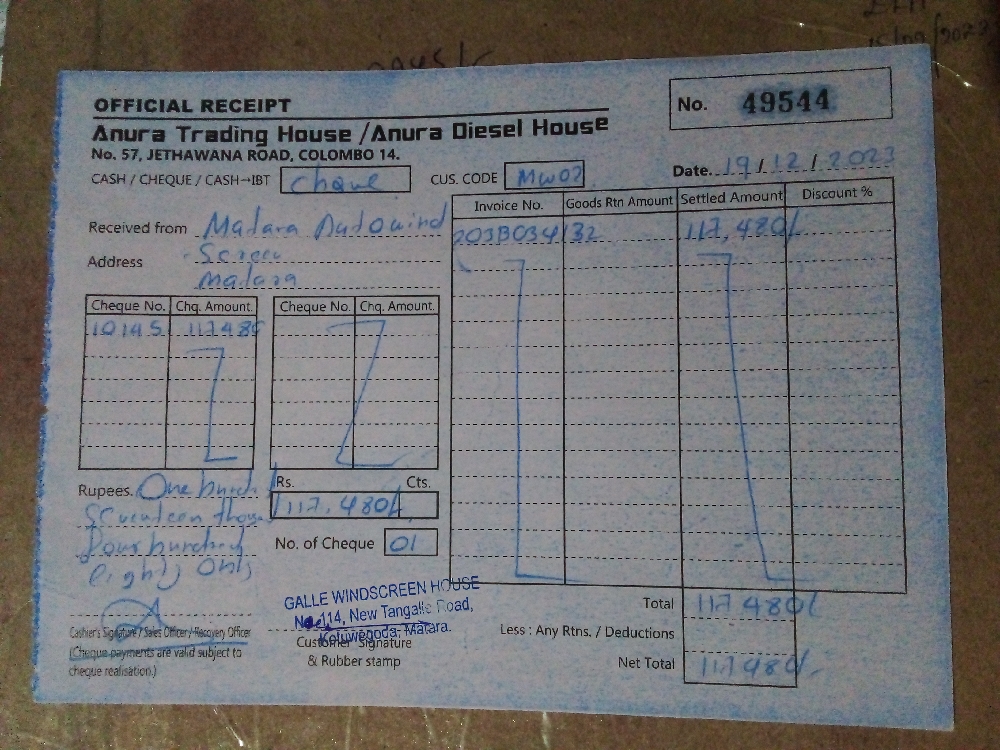 15/09/2023
OFFICIAL RECEIPT
No. 49544
Anura Trading House / Anura Diesel House
No. 57, JETHAWANA ROAD, COLOMBO 14.
Date. 19 / 12 / 2023
CASH / CHEQUE / CASH→IBT Chque
CUS. CODE MW02
Invoice No. Goods Rtn Amount Settled Amount Discount %
203B034132 117,480/-
Received from Matara Autowind
Address Screen
Matara
Cheque No. Chq. Amount. Cheque No. Chq. Amount.
10145 117480
Rupees. One hund
Seventeen thous
Four hundred
eighty Only
Rs. Cts.
117,480/-
No. of Cheque 01
GALLE WINDSCREEN HOUSE
No. 114, New Tangalle Road,
Kotuwegoda, Matara.
Cashier's Signature / Sales Officer / Recovery Officer
(Cheque payments are valid subject to
cheque realisation.)
Customer Signature
& Rubber stamp
Total 117480/-
Less : Any Rtns. / Deductions
Net Total 117480/-